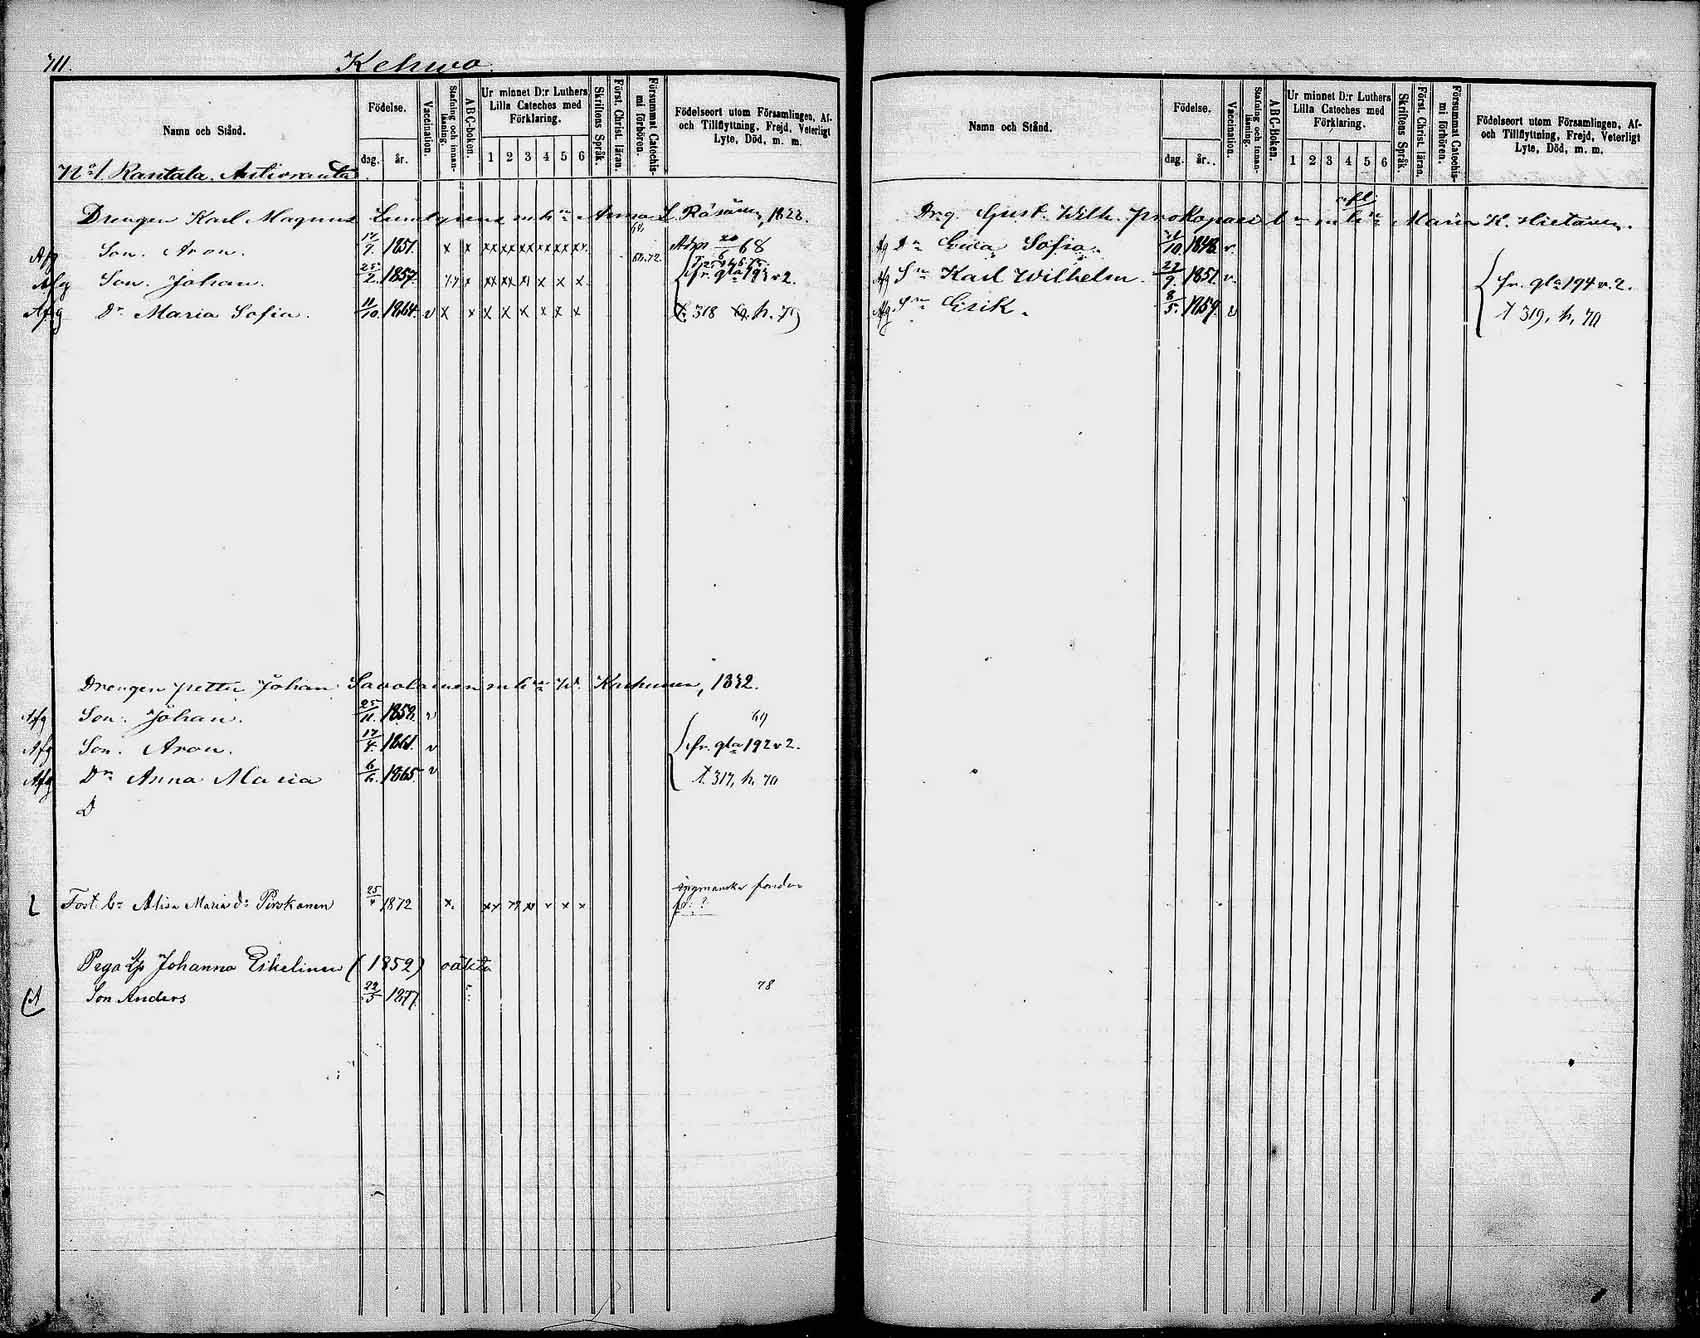 711.
Kehwo.
Namn och Stånd.
Födelse.
dag. år.
Vaccination.
Stafning och innanläsning.
ABC-boken.
Ur minnet D:r Luthers Lilla Cateches med Förklaring.
1 2 3 4 5 6
Skriftens Språk.
Först. Christ. läran.
Försummat Catechismi förhören.
Födelseort utom Församlingen, Af- och Tillflyttning, Frejd, Veterligt Lyte, Död, m. m.
No 1. Rantala. Antinranta
Drengen Karl Magnus Lundgrens m. h:u Anna L. Räsänen, 1828.
Son. Aron. 17/9. 1851. x x xx xx xx xx xx xx 68
Afg Son. Johan. 25/2. 1857. x x x xx xx x x x x fr. gla 193 v 2.
Afg Dr Maria Sofia. 11/10. 1864. v x x x x x x x x 318 h. 79
Drengen Petter Johan Savolainen m. h:u W. Kachunen, 1832.
Afg Son. Johan. 25/11. 1858. v 69
Afg Son. Aron. 17/4. 1861. v fr. gla 192 v 2.
Afg Dr Anna Maria 6/6. 1865. v t. 317, h. 70
D
Fost. b:n Alisa Maria d:r Pirskanen 25/4 1872 x. xx xx xx x x x
Johanna Eskelinen (1852) oäkta
Son Anders 22/5 1877. 78
Namn och Stånd.
Födelse.
dag. år.
Vaccination.
Stafning och innanläsning.
ABC-Boken.
Ur minnet D:r Luthers Lilla Cateches med Förklaring.
1 2 3 4 5 6
Skriftens Språk.
Först. Christ. läran.
Försummat Catechismi förhören.
Födelseort utom Församlingen, Af- och Tillflyttning, Frejd, Veterligt Lyte, Död, m. m.
Drg. Gust. Wilh. Prokopaei b:n m. h:u Maria K. Hietanen.
Afg Dr Ewa Sofia. 1848. v.
Afg Sn Karl Wilhelm. 27/9. 1851. v. fr. gla 194 v. 2.
Afg Sn Erik. 8/5. 1859. v t 319, h, 70